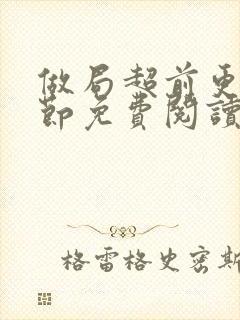 做局超前更
節免費閱讀
格雷格史密斯